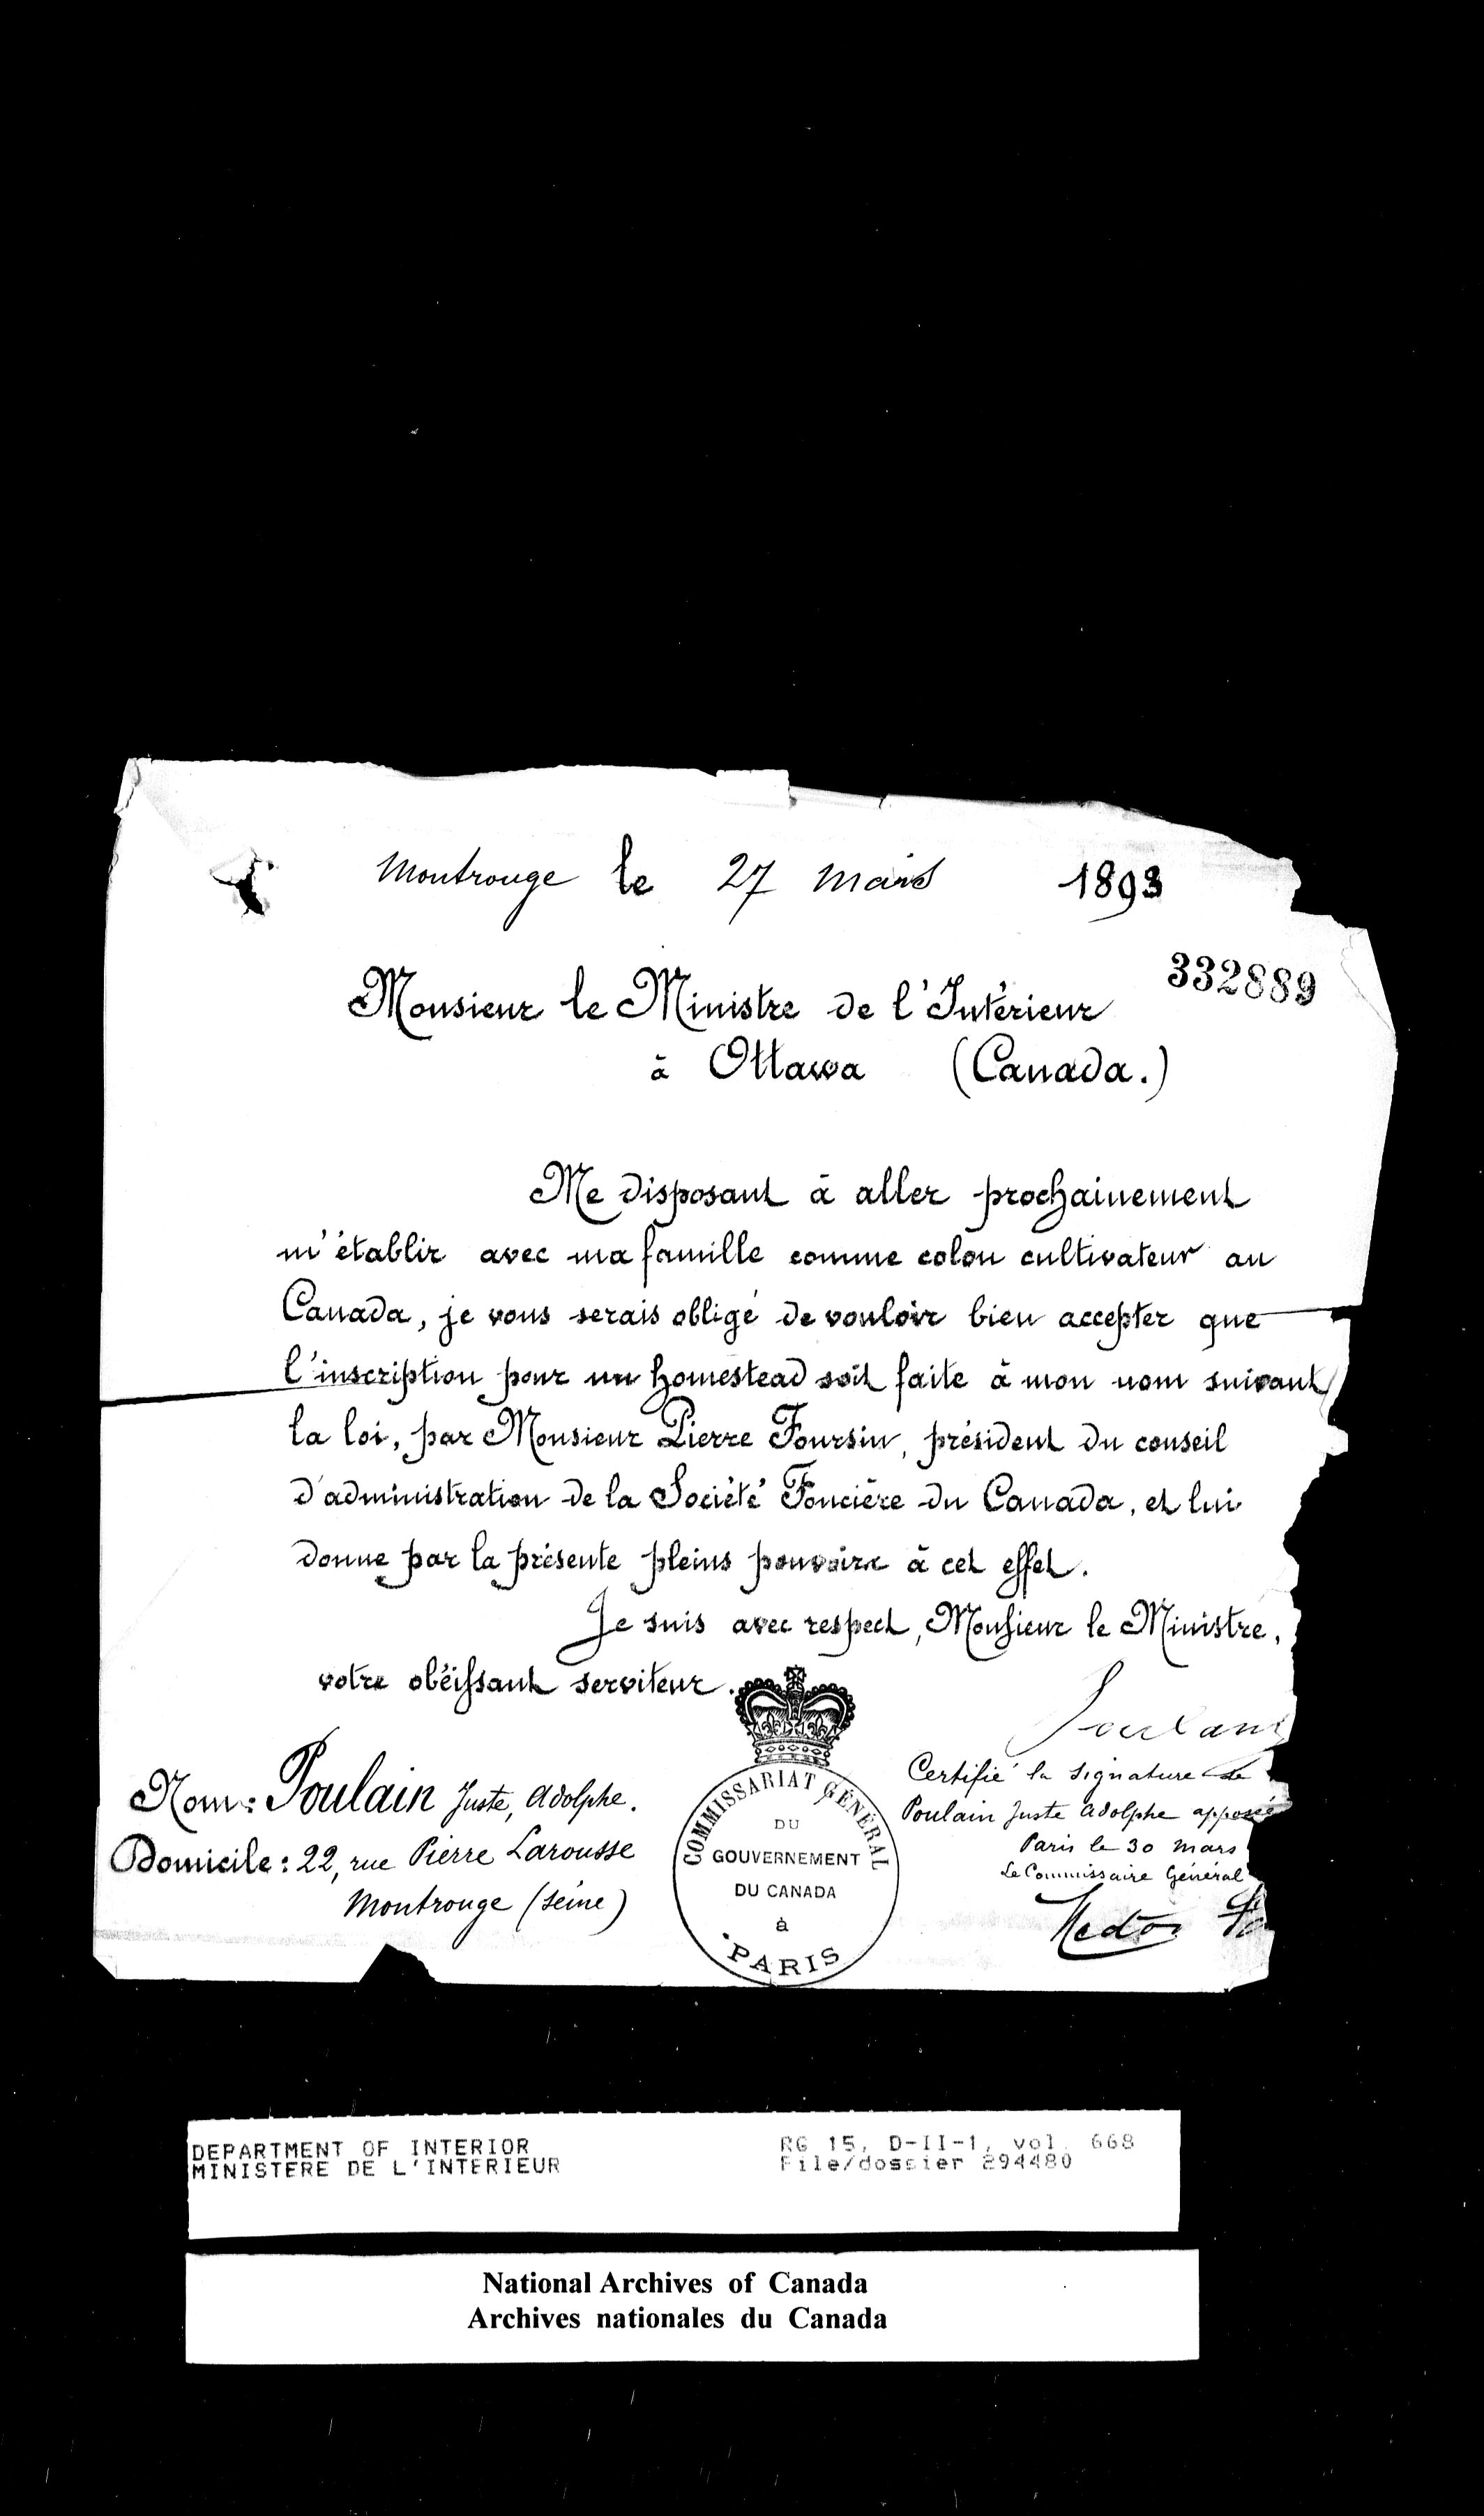 Montrouge le 27 mars 1893
332889
Monsieur le Ministre de l'Intérieur
à Ottawa (Canada.)
Me disposant à aller prochainement
m'établir avec ma famille comme colon cultivateur au
Canada, je vous serais obligé de vouloir bien accepter que
l'inscription pour un homestead soit faite à mon nom suivant
la loi, par Monsieur Pierre Foursin, président du conseil
d'administration de la Société Foncière du Canada, et lui
donne par la présente pleins pouvoirs à cet effet.
Je suis avec respect, Monsieur le Ministre,
votre obéissant serviteur.
Poulain
Nom: Poulain Juste, Adolphe.
Domicile: 22, rue Pierre Larousse
Montrouge (Seine)
COMMISSARIAT GÉNÉRAL
DU
GOUVERNEMENT
DU CANADA
à
PARIS
Certifié la signature de
Poulain Juste Adolphe apposée
Paris le 30 mars
Le Commissaire Général
Hector
DEPARTMENT OF INTERIOR
MINISTERE DE L'INTERIEUR
RG 15, D-II-1, vol. 668
File/dossier 294480
National Archives of Canada
Archives nationales du Canada